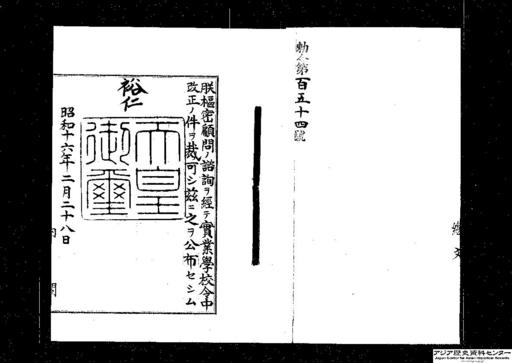 勅令第百五十四號
朕樞密顧問ノ諮詢ヲ經テ實業學校令中
改正ノ件ヲ裁可シ茲ニ之ヲ公布セシム
裕仁
天皇
御璽
昭和十六年二月二十八日
内閣
アジア歴史資料センター
Japan Center for Asian Historical Records